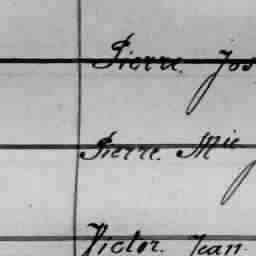 Pierre. Jos
Pierre. Mic
Victor. Jean